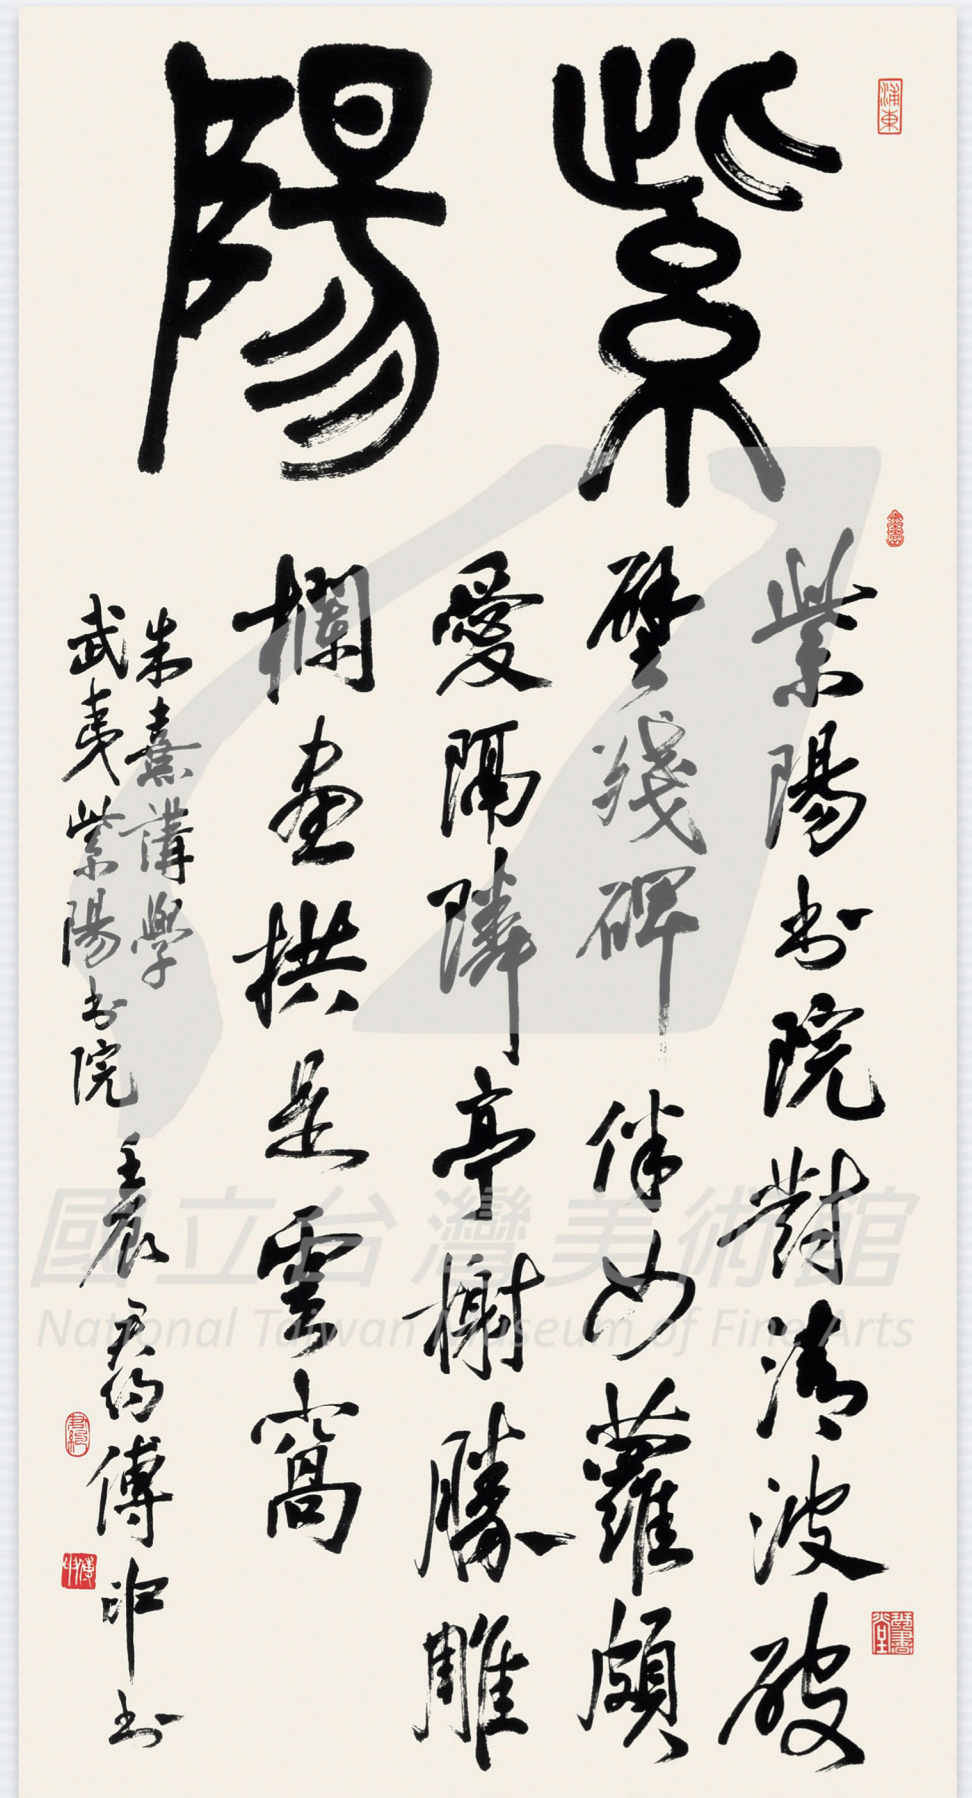 紫陽
紫陽书院對清波破
壁殘碑伴女蘿頗
愛隔隣亭榭勝雕
欄画栱是雲窩
朱熹講學
武夷紫陽书院 壬辰 天錫傅申书
浦東
國立台灣美術館
National Taiwan Museum of Fine Arts